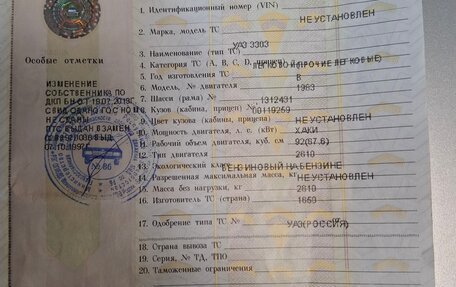 Особые отметки
ИЗМЕНЕНИЕ
СОБСТВЕННИКА ПО
1. Идентификационный номер (VIN)
НЕ УСТАНОВЛЕН
2. Марка, модель ТС
УАЗ 3303
3. Наименование (тип ТС)
4. Категория ТС (A, B, C, D, прицеп)
ЛЕГКОВОЙ(ПРОЧИЕ ЛЕГКОВЫЕ)
5. Год изготовления ТС
B
6. Модель, № двигателя
1983
7. Шасси (рама) №
8. Кузов (кабина, прицеп) №
00119259
9. Цвет кузова (кабины, прицепа)
НЕ УСТАНОВЛЕН
10. Мощность двигателя, л. с. (кВт)
ХАКИ
11. Рабочий объем двигателя, куб. см
92(67.6)
12. Тип двигателя
2610
13. Экологический класс
БЕНЗИНОВЫЙ НА БЕНЗИНЕ
14. Разрешенная максимальная масса, кг
НЕ УСТАНОВЛЕН
15. Масса без нагрузки, кг
2610
16. Изготовитель ТС (страна)
1650
17. Одобрение типа ТС №
УАЗ(РОССИЯ)
18. Страна вывоза ТС
19. Серия, № ТД, ТПО
20. Таможенные ограничения